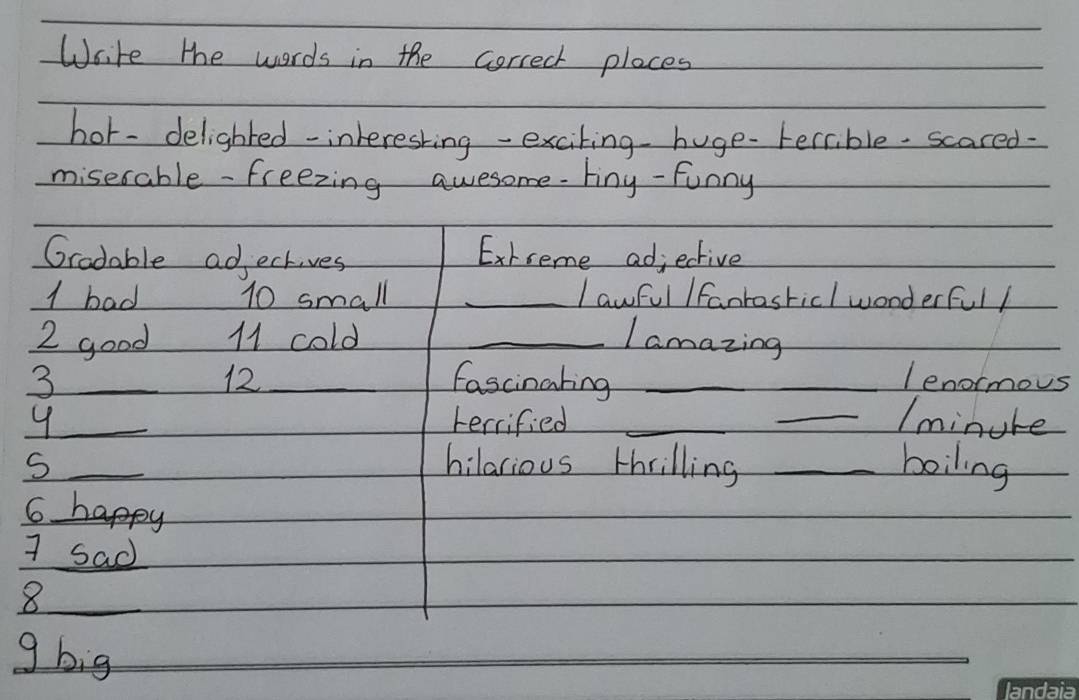 Write the words in the correct places
hot - delighted - interesting - exciting - huge - terrible - scared -
miserable - freezing awesome - tiny - funny
Gradable adjectives Extreme adjective
1 bad 10 small ______ / awful / fantastic / wonderful /
2 good 11 cold ______ / amazing
3 ______ 12 ______ fascinating ______ ______ / enormous
4 ______ terrified ______ ______ / minute
5 ______ hilarious thrilling ______ boiling
6 happy
7 sad
8 ______
9 big
landaia